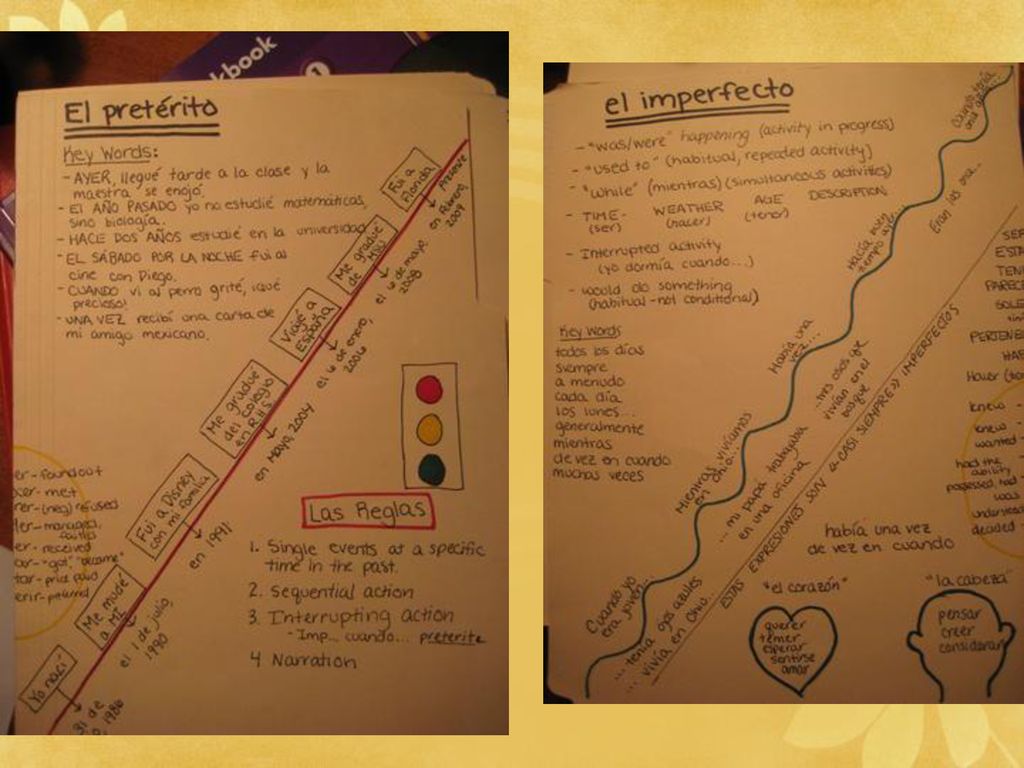 kbook
1
El pretérito
Key Words:
- AYER, llegué tarde a la clase y la
maestra se enojó.
- El AÑO PASADO yo no estudié matemáticas,
sino biología.
- HACE DOS AÑOS estudié en la universidad
- EL SÁBADO POR LA NOCHE fui al
cine con Diego.
- CUANDO vi al perro grité, ¡qué
precioso!
- UNA VEZ recibí una carta de
mi amigo mexicano.
Fui a
Florida
Presente
en febrero,
2009
Me gradué
de MSU
el 6 de mayo,
2008
Viajé a
España
el 6 de enero,
2006
Me gradué
del colegio
en R.H.S.
en Mayo, 2004
Fui a Disney
con mi familia
en 1991
Me mudé
a MI
el 1 de julio,
1990
Yo nací
31 de
1986
er - found out
cer - met
rer - (neg) refused
er - managed,
er - received
ar - "got" "became"
tar - price paid
erir - preferred
Las Reglas
1. Single events at a specific
time in the past.
2. Sequential action
3. Interrupting action
- Imp... cuando... preterite
4 Narration
el imperfecto
- "was/were" happening (activity in progress)
- "used to" (habitual, repeated activity)
- "while" (mientras) (simultaneous activities)
- TIME - WEATHER AGE DESCRIPTION
(ser) (hacer) (tener)
- Interrupted activity
(yo dormía cuando...)
- would do something
(habitual - not conditional)
Key Words
todos los días
siempre
a menudo
cada día
los lunes...
generalmente
mientras
de vez en cuando
muchas veces
Cuando tenía
Eran las once...
Hacía buen
tiempo ayer...
Había una
vez...
...tres osos que
vivían en el
bosque
Mientras vivíamos
en Ohio...
... mi papa trabajaba
en una oficina
Cuando yo
era joven...
... tenía ojos azules
... vivía en Ohio.
ESTAS EXPRESIONES SON «CASI SIEMPRE» IMPERFECTOS
SER
ESTA
TEN
PAREC
SOLE
PERTENE
HAB
Hacer
knew -
knew -
wanted -
had the
ability
possessed, had -
was
decided -
había una vez
de vez en cuando
"el corazón"
querer
temer
esperar
sentirse
amar
"la cabeza"
pensar
creer
considerar